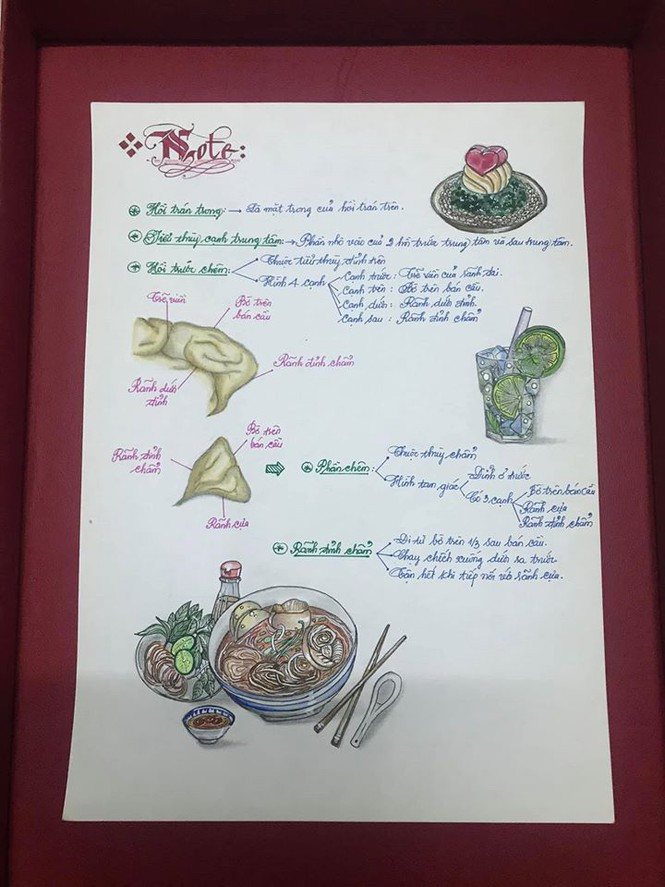 Note:
Hồi trán trong: → Là mặt trong của hồi trán trên.
Tiểu thùy cạnh trung tâm: → Phần nhỏ vào của 2 hồi trước trung tâm và sau trung tâm.
Hồi trước chêm:
Thuộc tiểu thùy đỉnh trên
Hình 4 cạnh
Cạnh trước : Trẽ viền của rãnh đai.
Cạnh trên : Bờ trên bán cầu.
Cạnh dưới : Rãnh dưới đỉnh.
Cạnh sau : Rãnh đỉnh chẩm
Trẽ viền
Bờ trên bán cầu
Rãnh đỉnh chẩm
Rãnh dưới đỉnh
Bờ trên bán cầu
Rãnh đỉnh chẩm
Rãnh cựa
Phần chêm:
Thuộc thùy chẩm
Hình tam giác
Đỉnh ở trước
Có 3 cạnh
Bờ trên bán cầu
Rãnh cựa
Rãnh đỉnh chẩm
Rãnh đỉnh chẩm
Đi từ bờ trên 1/3 sau bán cầu.
Chạy chếch xuống dưới ra trước
Tận hết khi tiếp nối với rãnh cựa.